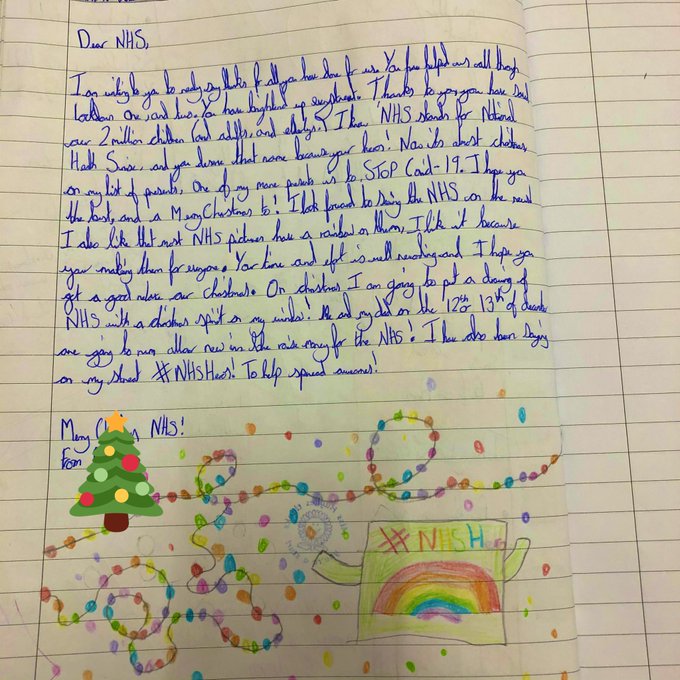 Dear NHS,
I am writing to you to really say thanks for all you have done for us. You have helped us all though
lockdown one, and two. You have brightend up everyone. Thanks to you, you have
over 2 million children (and adults, and elderlys.) I know 'NHS stands for National
Heath Sirvise, and you deserve that name because your heros! Now its almost christmas,
on my list of presents, One of my main presents is to STOP Covid-19. I hope you
the best, and a Merry Christmas to! I look forward to seing the NHS on the news
I also like that most NHS pictures have a rainbow on them, I like it because
your making them for everyone. Your time and efort is well and I hope you
get a good our Christmas. On christmas I am going to put a drawing of
NHS with a christmas spirit on my window! Me and my dad on the 12th or 13th of december
are going to run to raise money for the NHS! I have also been
on my street #NHSHeros! To help spread
Merry NHS!
From
#NHSH